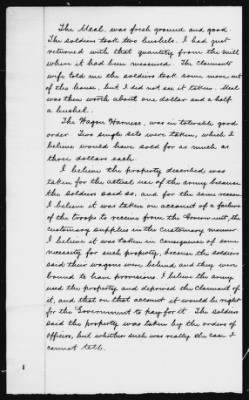 The Meal was fresh ground and good.
The soldiers took two bushels. I had just
returned with that quantity from the mill
where it had been measured. The claimants
wife told me the soldiers took some more out
of the house, but I did not see it taken. Meal
was then worth about one dollar and a half
a bushel.
The Wagon Harness, was in tolerable good
order. Two single sets were taken, which I
believe would have sold for as much as
three dollars each.
I believe the property described was
taken for the actual use of the army because
the soldiers said so, and for the same reason
I believe it was taken on account of a failure
of the troops to receive from the Government, the
customary supplies in the customary manner
I believe it was taken in consequence of some
necessity for such property, because the soldiers
said their wagons were behind and they were
bound to have provisions. I believe the army
used the property and deprived the claimant of
it, and that on that account it would be right
for the Government to pay for it. The soldiers
said the property was taken by the orders of
officers, but whether such was really the case I
cannot tell.